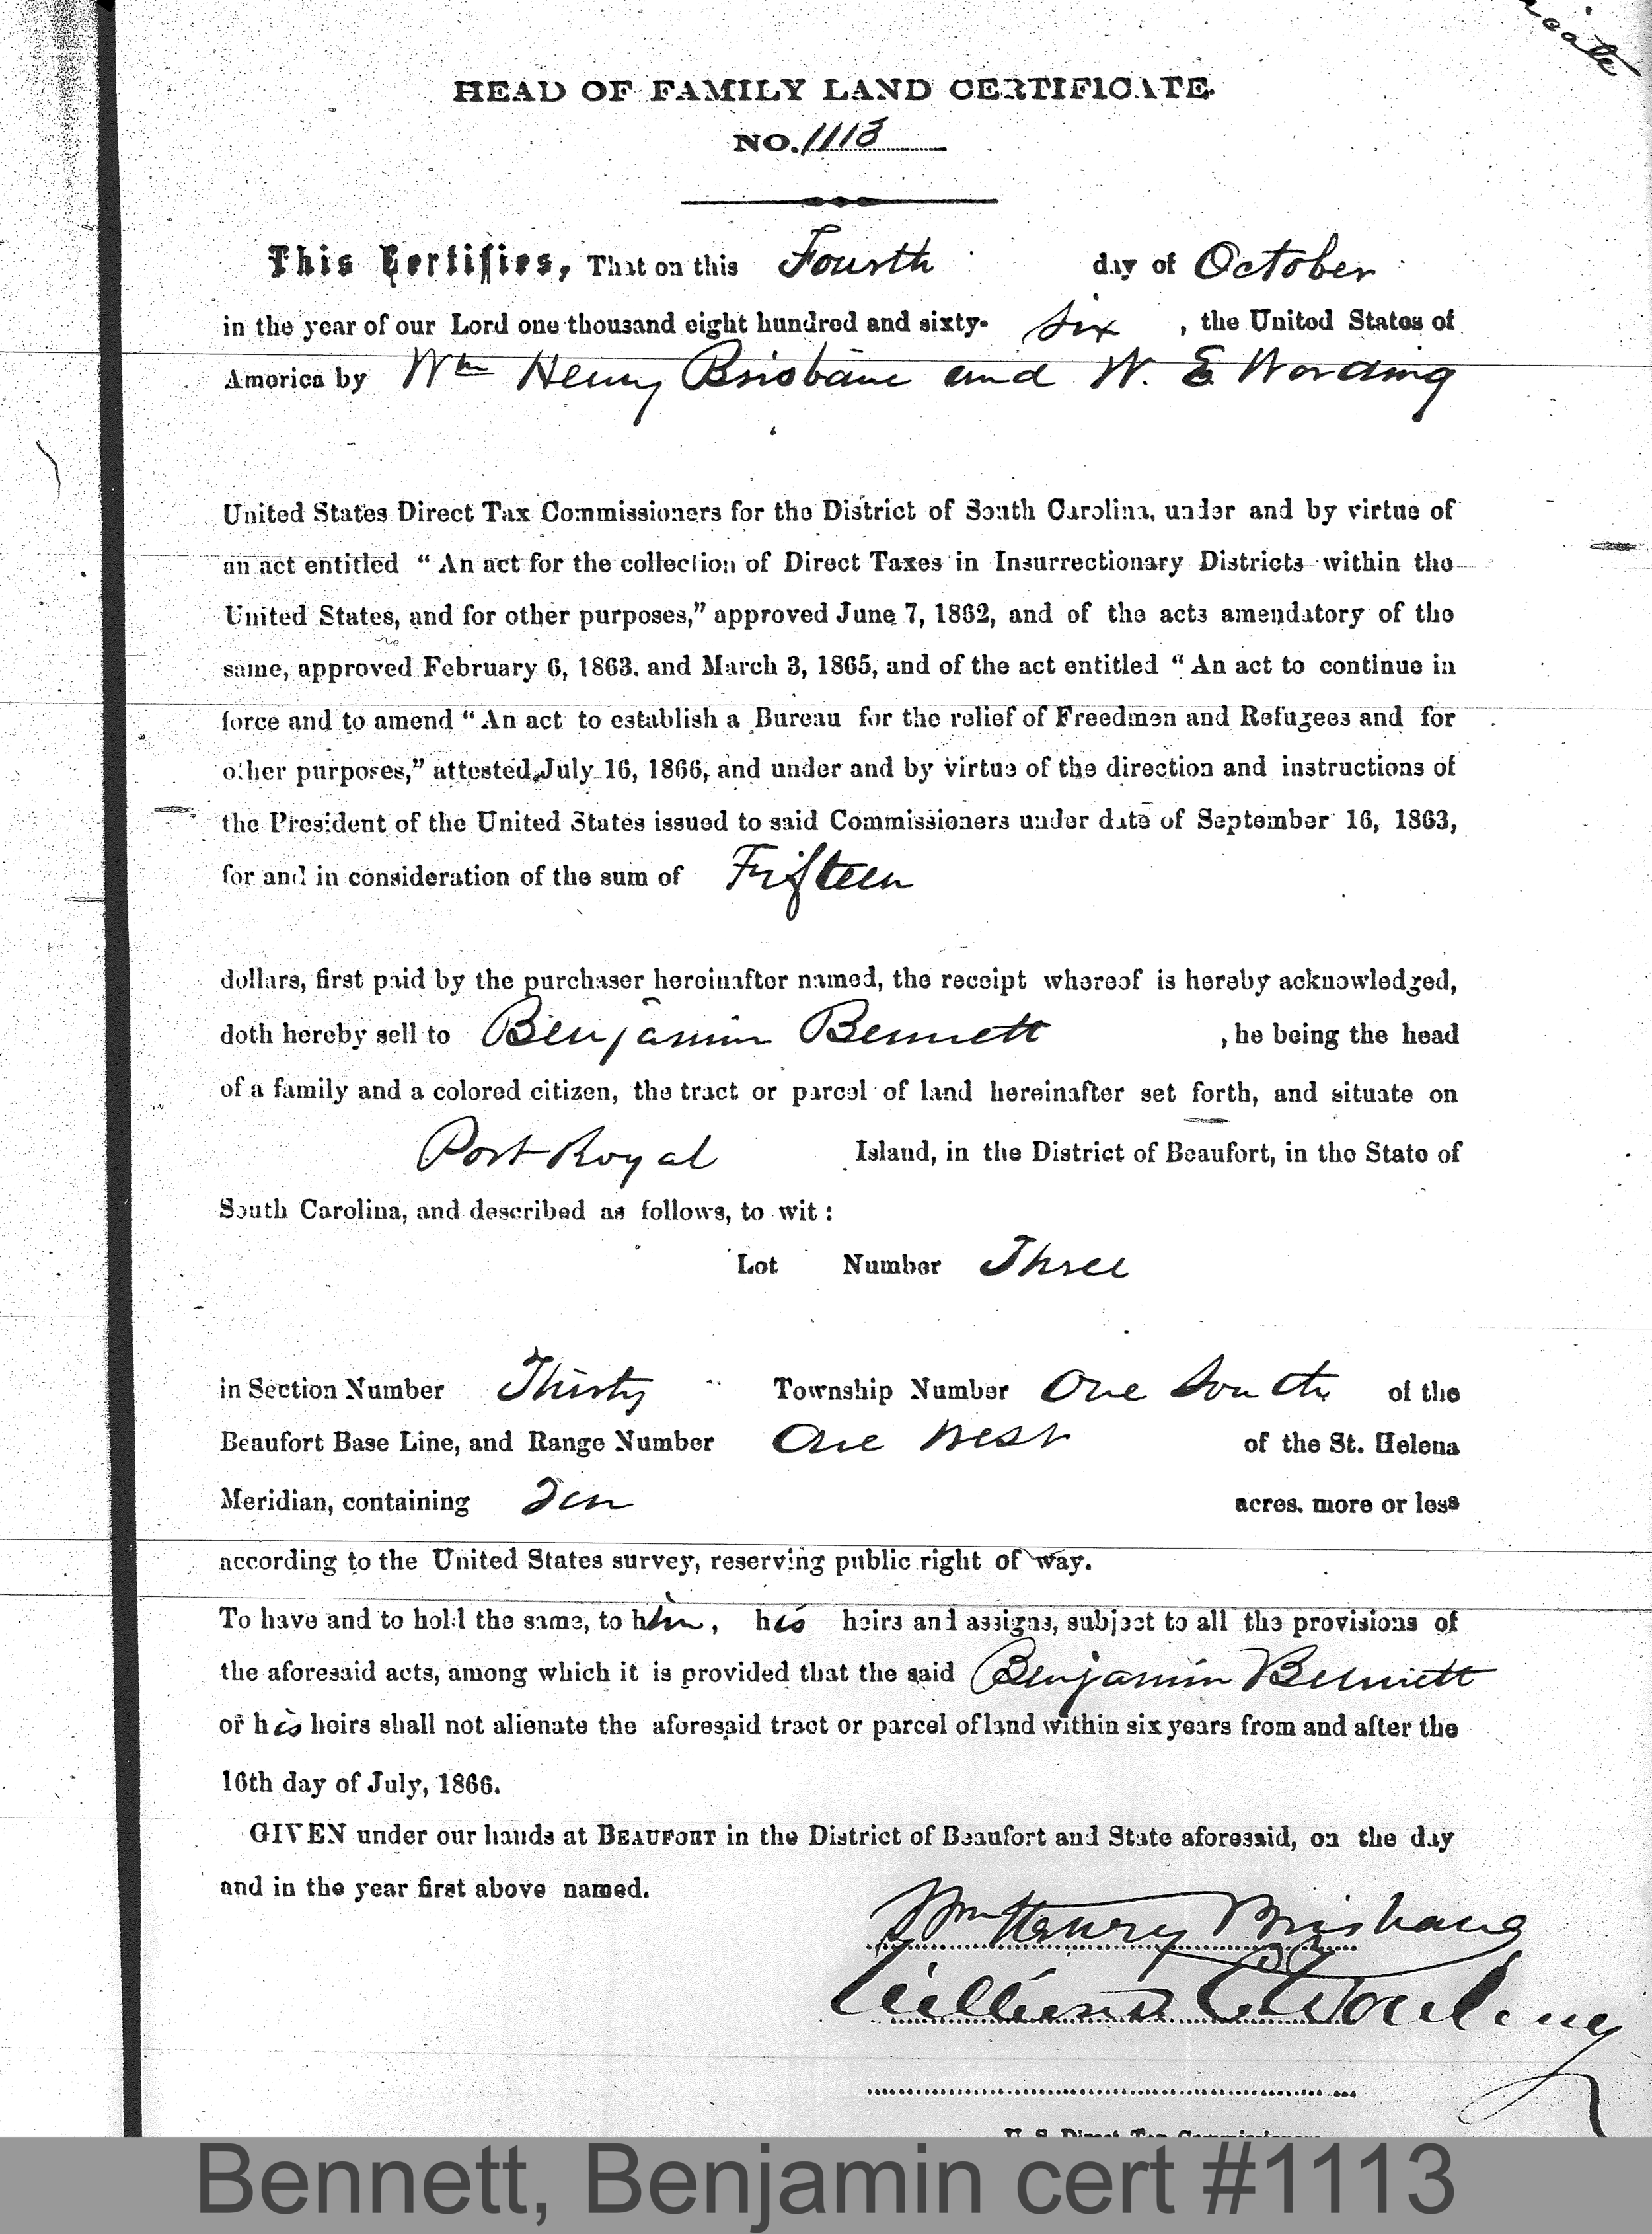 HEAD OF FAMILY LAND CERTIFICATE.
NO. 1113
This Certifies, That on this Fourth day of October
in the year of our Lord one thousand eight hundred and sixty- six , the United States of
America by Wm Henry Brisbane and W. E. Wording
United States Direct Tax Commissioners for the District of South Carolina, under and by virtue of
an act entitled “An act for the collection of Direct Taxes in Insurrectionary Districts within the
United States, and for other purposes,” approved June 7, 1862, and of the acts amendatory of the
same, approved February 6, 1863. and March 3, 1865, and of the act entitled “An act to continue in
force and to amend “An act to establish a Bureau for the relief of Freedmen and Refugees and for
other purposes,” attested July 16, 1866, and under and by virtue of the direction and instructions of
the President of the United States issued to said Commissioners under date of September 16, 1863,
for and in consideration of the sum of Fifteen
dollars, first paid by the purchaser hereinafter named, the receipt whereof is hereby acknowledged,
doth hereby sell to Benjamin Bennett , he being the head
of a family and a colored citizen, the tract or parcel of land hereinafter set forth, and situate on
Port Royal Island, in the District of Beaufort, in the State of
South Carolina, and described as follows, to wit:
Lot Number Three
in Section Number Thirty Township Number One South of the
Beaufort Base Line, and Range Number One West of the St. Helena
Meridian, containing Ten acres. more or less
according to the United States survey, reserving public right of way.
To have and to hold the same, to him, his heirs and assigns, subject to all the provisions of
the aforesaid acts, among which it is provided that the said Benjamin Bennett
or his heirs shall not alienate the aforesaid tract or parcel of land within six years from and after the
16th day of July, 1866.
GIVEN under our hands at BEAUFORT in the District of Beaufort and State aforesaid, on the day
and in the year first above named.
Wm Henry Brisbane
William E. Wording
U. S. Direct Tax Commissioners
Bennett, Benjamin cert #1113